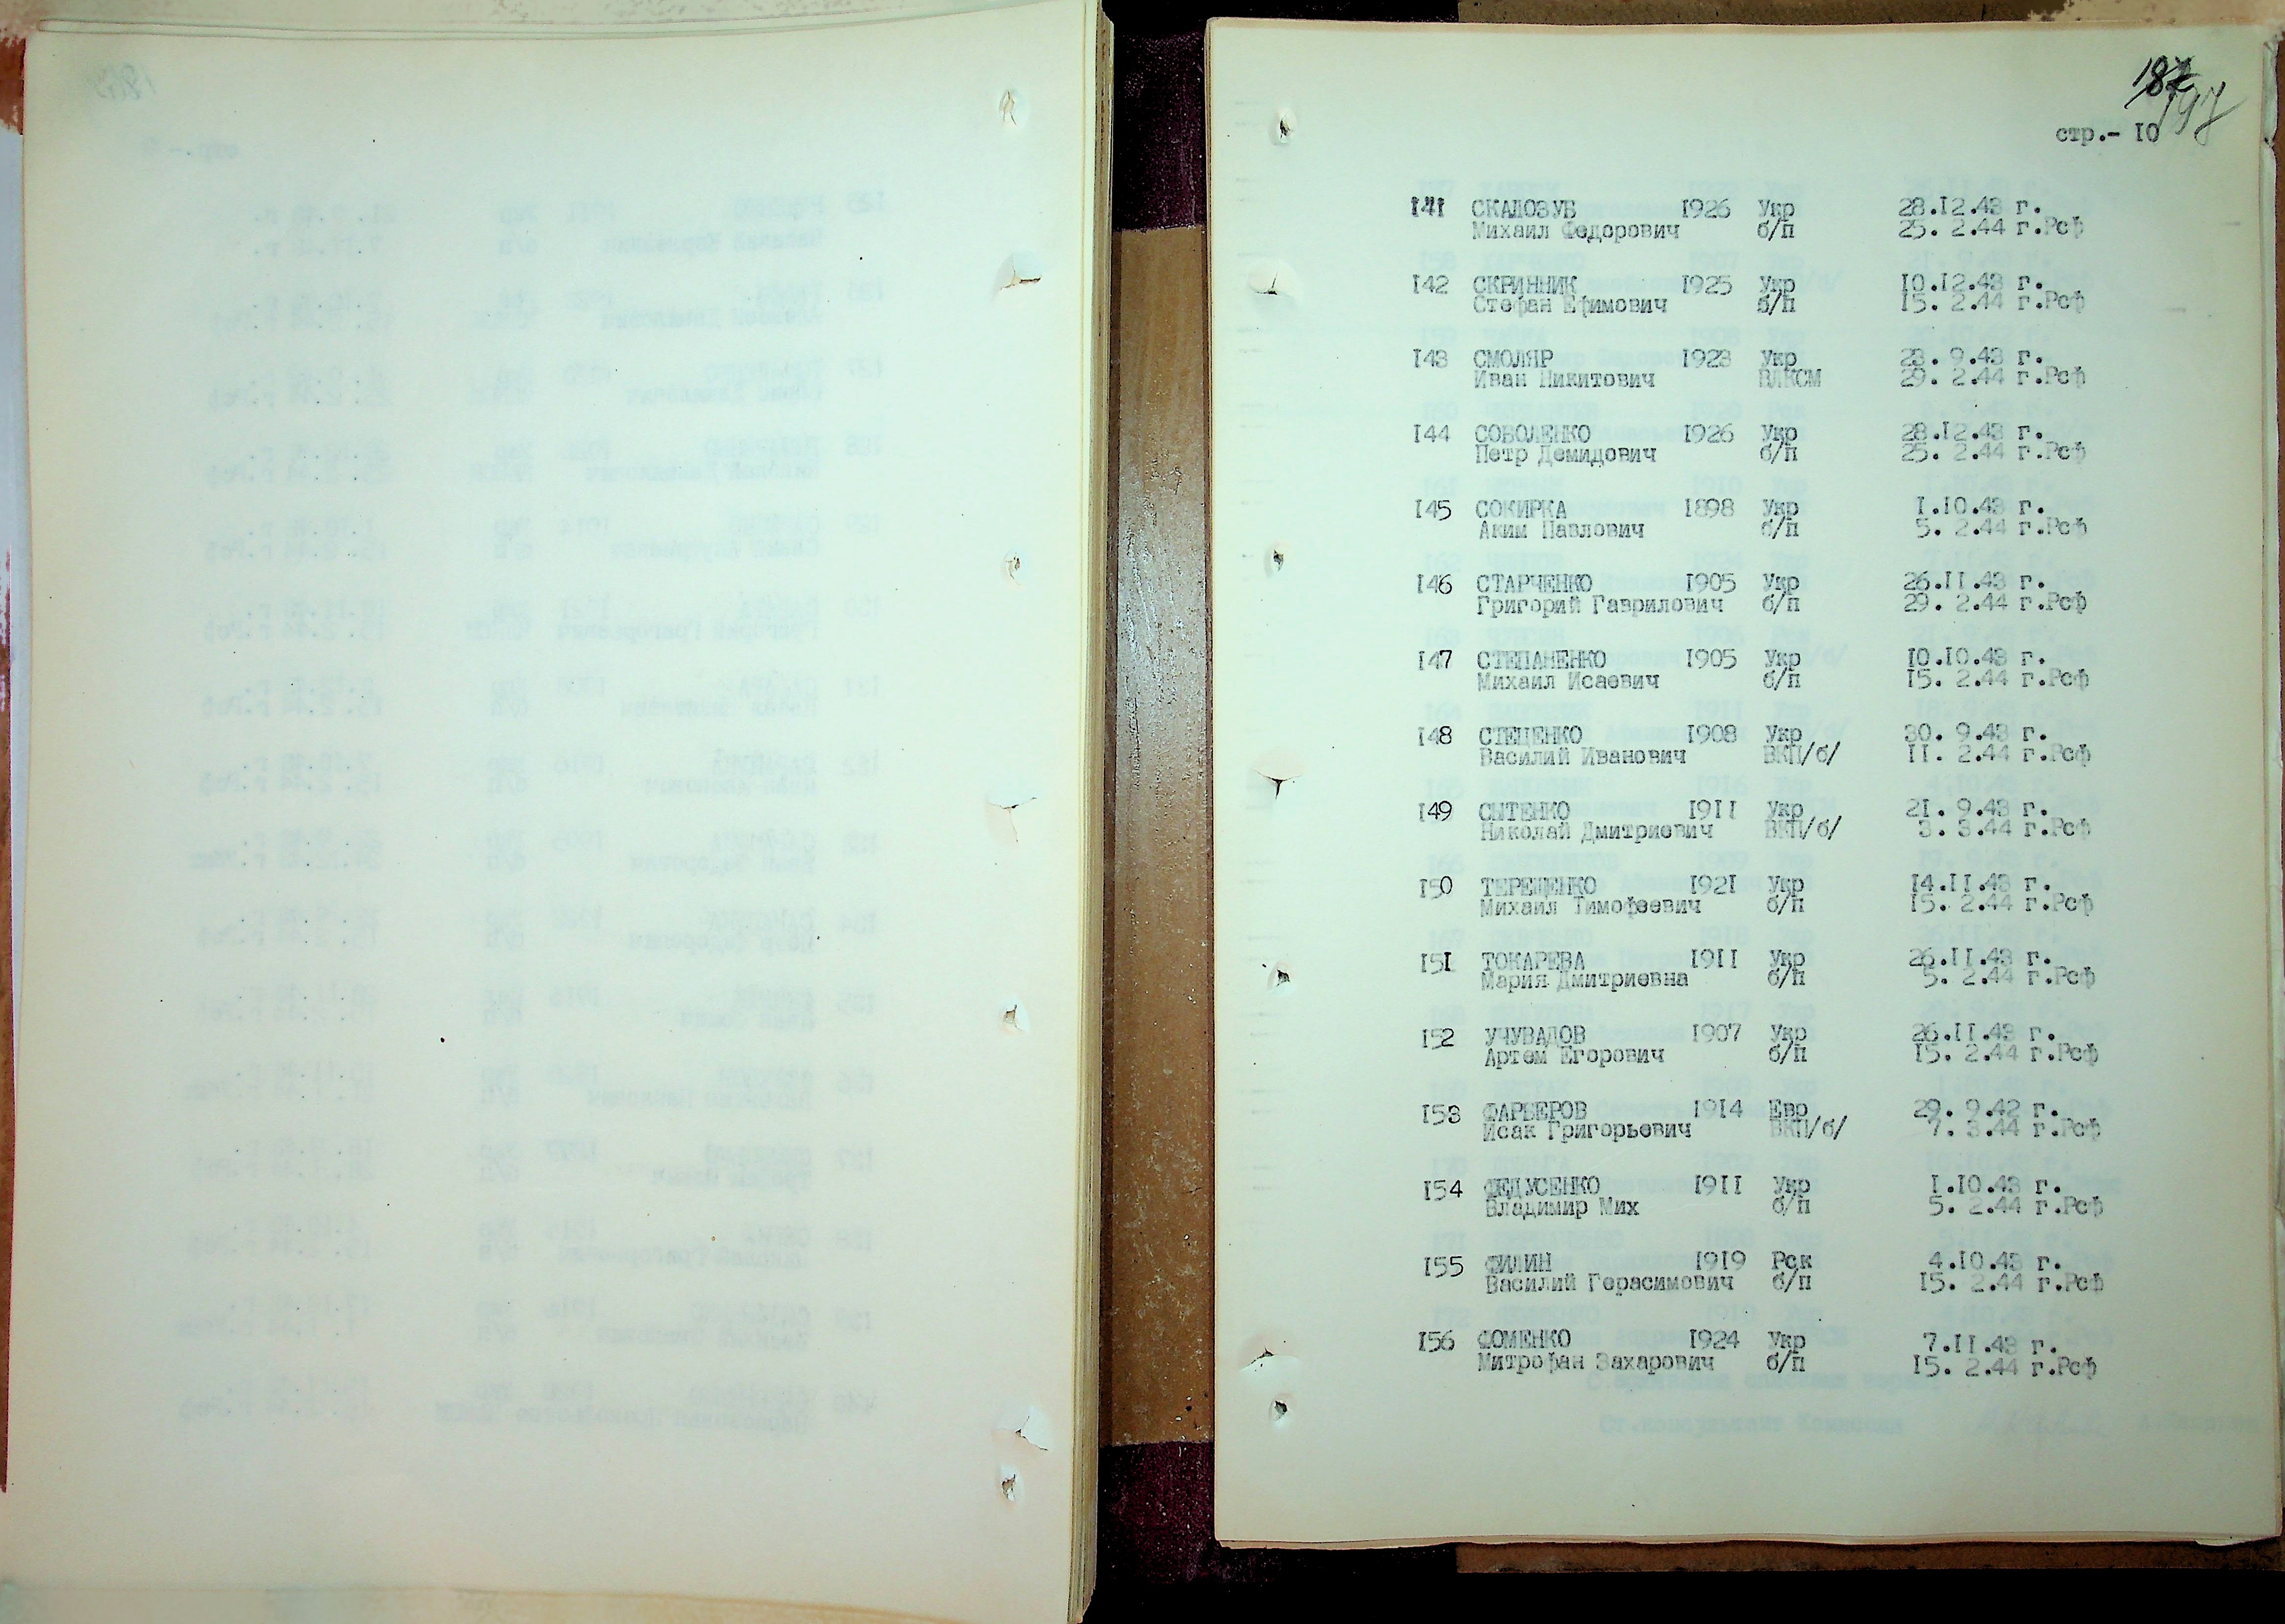 187
197
стр.- 10
141 СКАЛОЗУБ 1926 Укр 28.12.43 г.
Михаил Федорович б/п 25. 2.44 г.Рсф
142 СКРИННИК 1925 Укр 10.12.43 г.
Стефан Ефимович б/п 15. 2.44 г.Рсф
143 СМОЛЯР 1923 Укр 23. 9.43 г.
Иван Никитович ВЛКСМ 29. 2.44 г.Рсф
144 СОВОЛЕНКО 1926 Укр 28.12.43 г.
Петр Демидович б/п 25. 2.44 г.Рсф
145 СОКИРКА 1898 Укр 1.10.43 г.
Аким Павлович б/п 5. 2.44 г.Рсф
146 СТАРЧЕНКО 1905 Укр 26.11.43 г.
Григорий Гаврилович б/п 29. 2.44 г.Рсф
147 СТЕПАНЕНКО 1905 Укр 10.10.43 г.
Михаил Исаевич б/п 15. 2.44 г.Рсф
148 СТЕЦЕНКО 1908 Укр 30. 9.43 г.
Василий Иванович ВКП/б/ 11. 2.44 г.Рсф
149 СЫТЕНКО 1911 Укр 21. 9.43 г.
Николай Дмитриевич ВКП/б/ 3. 3.44 г.Рсф
150 ТЕРЕЩЕНКО 1921 Укр 14.11.43 г.
Михаил Тимофеевич б/п 15. 2.44 г.Рсф
151 ТОКАРЕВА 1911 Укр 26.11.43 г.
Мария Дмитриевна б/п 5. 2.44 г.Рсф
152 УЧУВАДОВ 1907 Укр 26.11.43 г.
Артем Егорович б/п 15. 2.44 г.Рсф
153 ФАРБЕРОВ 1914 Евр 29. 9.42 г.
Исак Григорьевич ВКП/б/ 7. 3.44 г.Рсф
154 ФЕДУСЕНКО 1911 Укр 1.10.43 г.
Владимир Мих б/п 5. 2.44 г.Рсф
155 ФИЛИН 1919 Рск 4.10.43 г.
Василий Герасимович б/п 15. 2.44 г.Рсф
156 ФОМЕНКО 1924 Укр 7.11.43 г.
Митрофан Захарович б/п 15. 2.44 г.Рсф